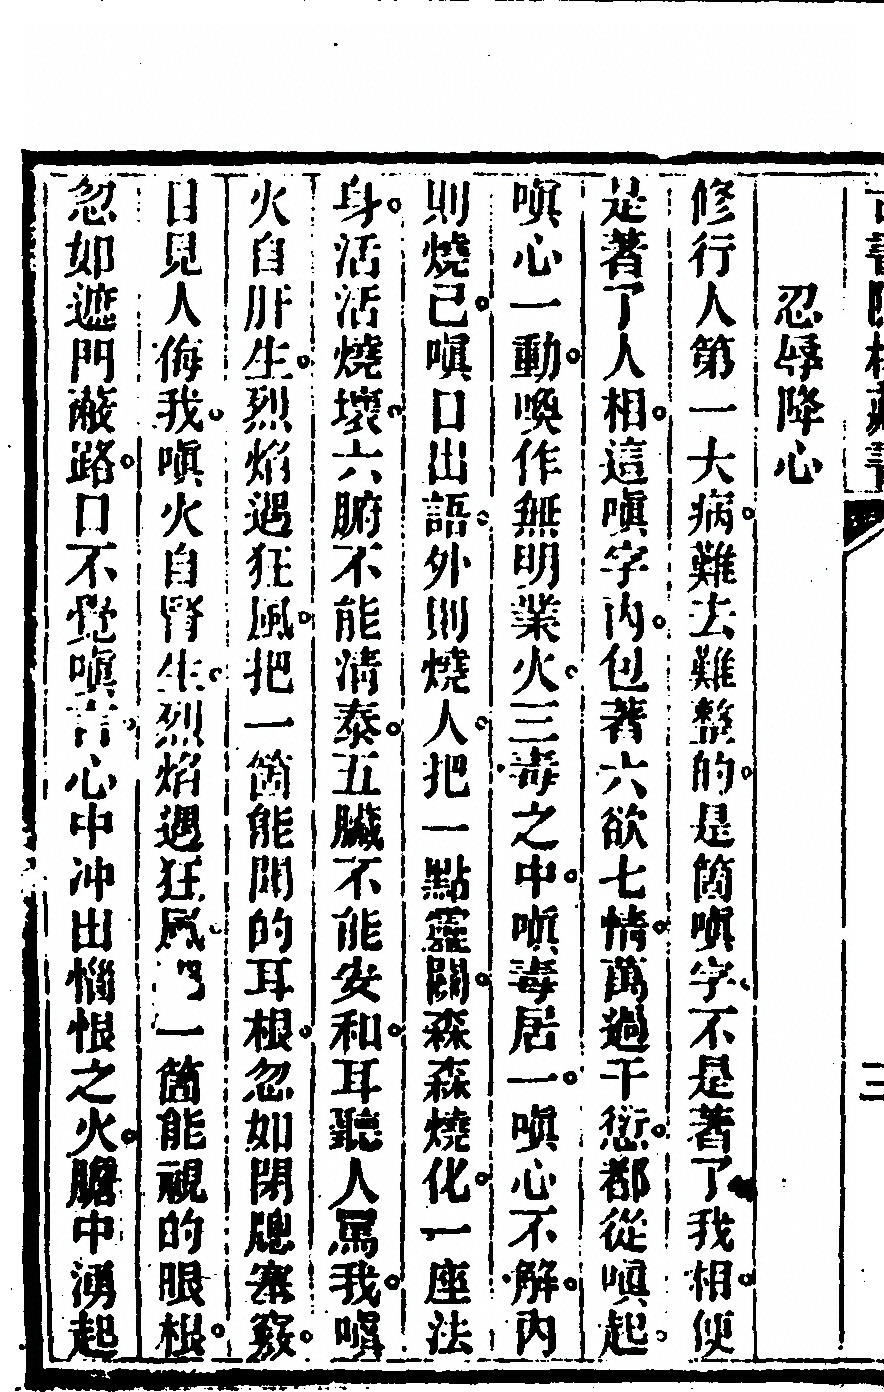 忍辱降心
修行人第一大病。難去難整的。是箇嗔字。不是著了我相。便
是著了人相。這嗔字內。包著六欲七情。萬過千愆。都從嗔起。
嗔心一動。喚作無明業火。三毒之中。嗔毒居一。嗔心不解。內
則燒己。嗔口出語。外則燒人。把一點靈關。森森燒化。一座法
身。活活燒壞。六腑不能清泰。五臟不能安和。耳聽人罵我。嗔
火自肝生。烈焰遇狂風。把一箇能聞的耳根。忽如閉牕塞竅。
目見人侮我。嗔火自腎生。烈焰遇狂風。把一箇能視的眼根。
忽如遮門蔽路。口不覺嗔言。心中冲出惱恨之火。膽中湧起